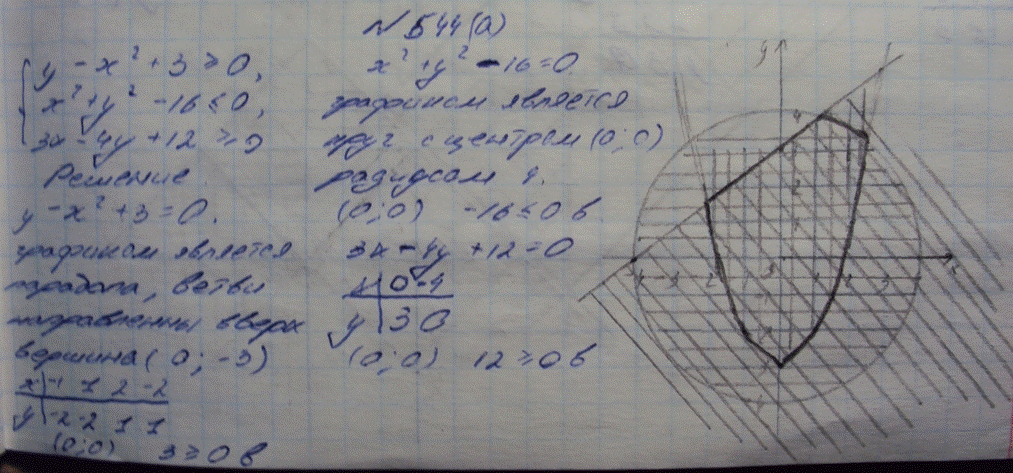 N 544(а)
y - x² + 3 ≥ 0,
x² + y² - 16 ≤ 0,
3x - 4y + 12 ≥ 0
Решение.
y - x² + 3 = 0.
графиком является
парабола, ветви
направленны вверх
вершина (0; -3)
x | -1 1 2 -2
y | -2 -2 1 1
(0;0) 3 ≥ 0 в
x² + y² - 16 = 0
графиком является
круг с центром (0; 0)
радиусом 4.
(0;0) -16 ≤ 0 в
3x - 4y + 12 = 0
x | 0 -4
y | 3 0
(0;0) 12 ≥ 0 в
y
x